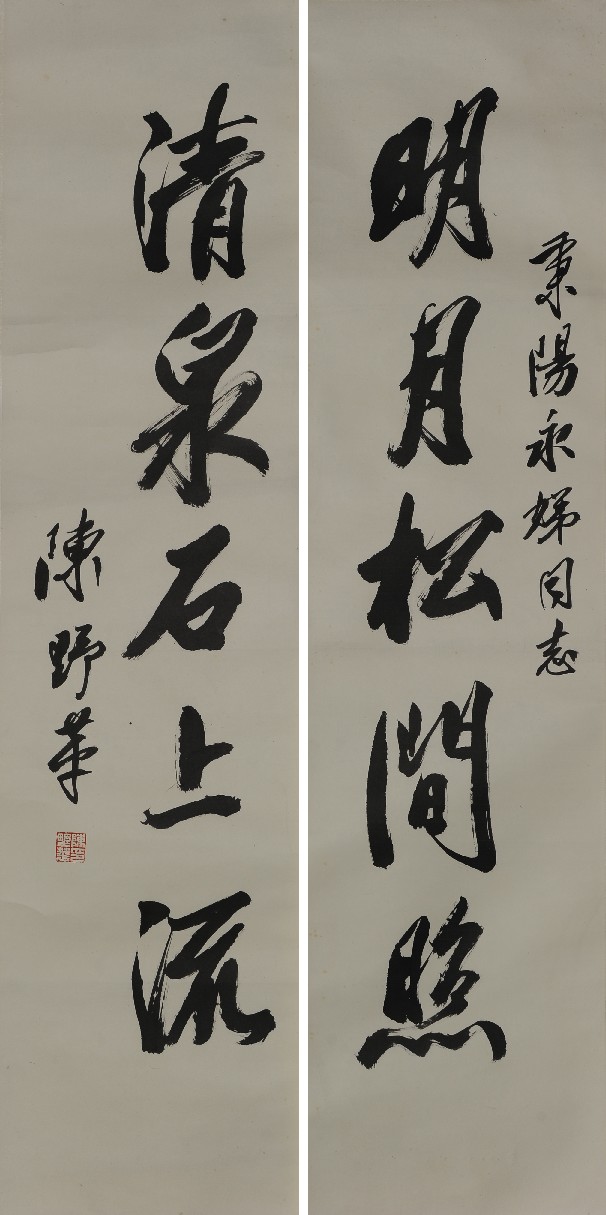 秉陽永娣同志
明月松間照
清泉石上流
陳野苹